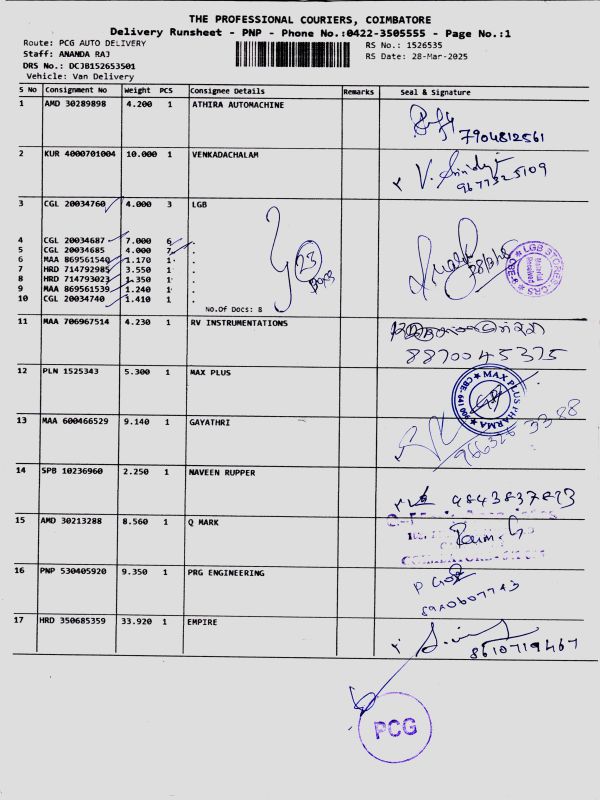 THE PROFESSIONAL COURIERS, COIMBATORE
Delivery Runsheet - PNP - Phone No.:0422-3505555 - Page No.:1
Route: PCG AUTO DELIVERY
RS No.: 1526535
Staff: ANANDA RAJ
RS Date: 28-Mar-2025
DRS No.: DCJB152653501
Vehicle: Van Delivery
S No Consignment No Weight PCS Consignee Details Remarks Seal & Signature
1 AMD 30289898 4.200 1 ATHIRA AUTOMACHINE
7904812561
2 KUR 4000701004 10.000 1 VENKADACHALAM
9677325109
3 CGL 20034760 4.000 3 LGB
4 CGL 20034687 7.000 6 .
5 CGL 20034685 4.000 7 .
6 MAA 869561540 1.170 1 .
7 HRD 714792985 3.550 1 .
8 HRD 714793023 1.350 1 .
9 MAA 869561539 1.240 1 .
10 CGL 20034740 1.410 1 .
23
No.Of Docs: 8
LGB STORES-CRS
11 MAA 706967514 4.230 1 RV INSTRUMENTATIONS
8870045375
12 PLN 1525343 5.300 1 MAX PLUS
MAX PLUS PHARMA
13 MAA 600466529 9.140 1 GAYATHRI
14 SPB 10236960 2.250 1 NAVEEN RUPPER
9843837873
15 AMD 30213288 8.560 1 Q MARK
16 PNP 530405920 9.350 1 PRG ENGINEERING
17 HRD 350685359 33.920 1 EMPIRE
8610719467
PCG